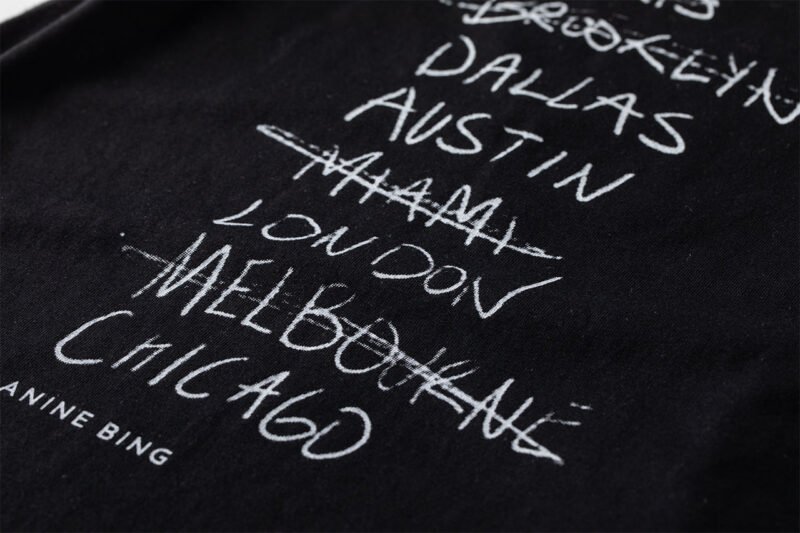 BROOKLYN
DALLAS
AUSTIN
MIAMI
LONDON
MELBOURNE
CHICAGO
ANINE BING